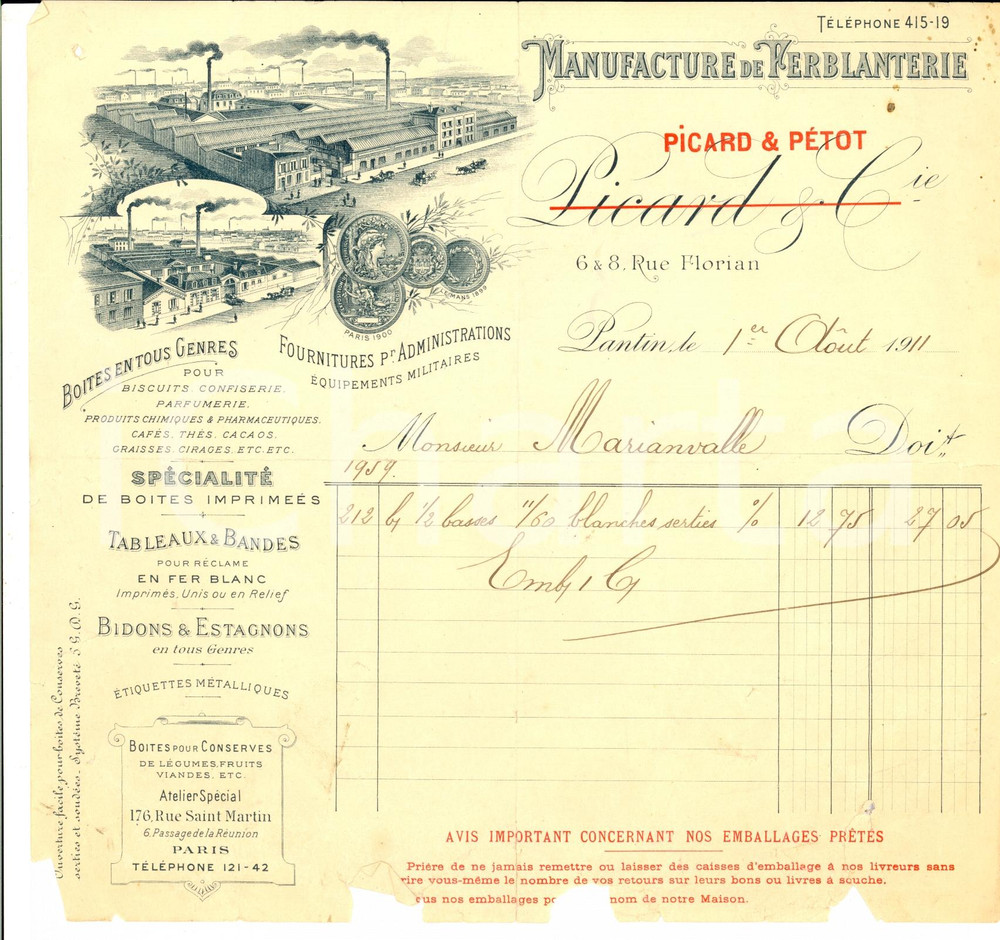 TÉLÉPHONE 415-19
MANUFACTURE DE FERBLANTERIE
PICARD & PÉTOT
Picard & Cie
6 & 8, Rue Florian
PARIS 1900
LE MANS 1899
Pantin, le 1er Août 1911
BOITES EN TOUS GENRES
POUR
BISCUITS, CONFISERIE,
PARFUMERIE,
PRODUITS CHIMIQUES & PHARMACEUTIQUES,
CAFÉS, THÉS, CACAOS,
GRAISSES, CIRAGES, ETC. ETC.
SPÉCIALITÉ
DE BOITES IMPRIMEÉS
TABLEAUX & BANDES
POUR RÉCLAME
EN FER BLANC
Imprimés, Unis ou en Relief
BIDONS & ESTAGNONS
en tous Genres
ÉTIQUETTES MÉTALLIQUES
FOURNITURES Pr ADMINISTRATIONS
ÉQUIPEMENTS MILITAIRES
Monsieur Marianvalle Doit
1959.
212 b/ 1/2 basses 11/60 blanches serties % 12 75 27 05
Emb/ 1 C/
Ouverture facile pour boites de Conserves
serties et soudées. Système Breveté S.G.D.G.
BOITES POUR CONSERVES
DE LÉGUMES, FRUITS
VIANDES, ETC.
Atelier Spécial
176, Rue Saint Martin
6, Passage de la Réunion
PARIS
TÉLÉPHONE 121-42
AVIS IMPORTANT CONCERNANT NOS EMBALLAGES PRÊTÉS
Prière de ne jamais remettre ou laisser des caisses d'emballage à nos livreurs sans
rire vous-même le nombre de vos retours sur leurs bons ou livres à souche.
ous nos emballages po nom de notre Maison.